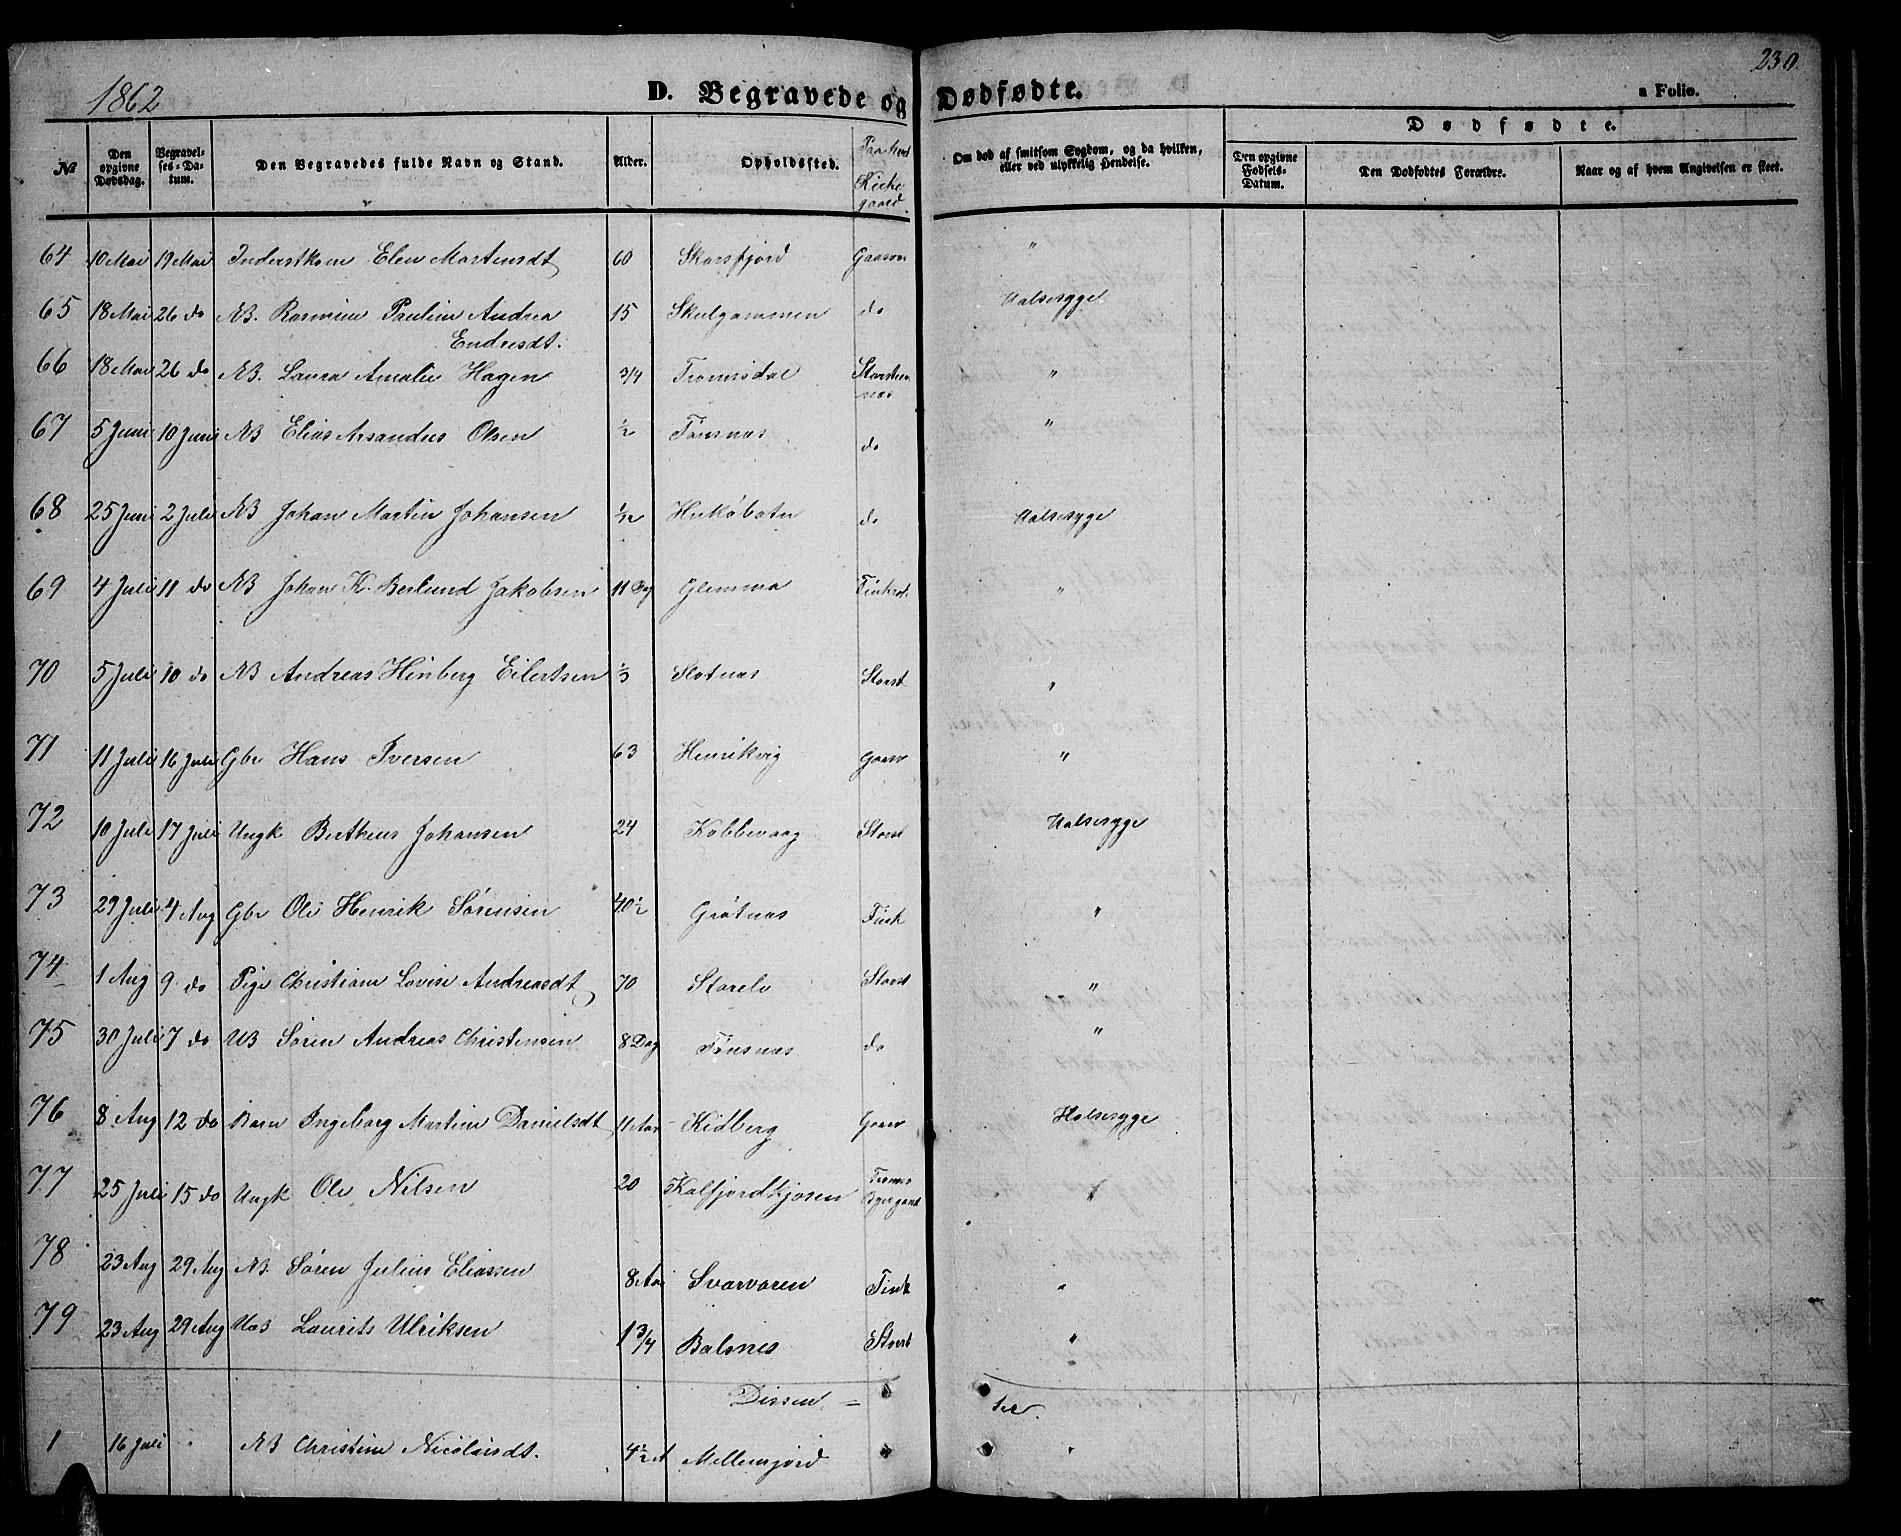 1862 D. Begravede og Dødfødte. a Folio. 230.
№ Den opgivne Dødsdag. Begravelses-Datum. Den Begravedes fulde Navn og Stand. Alder. Opholdssted. Kirkegaard. Om død af smitsom Sygdom, og da hvilken, eller ved ulykkelig Hendelse. Dødfødte. Den opgivne Fødsels-Datum. Den Dødfødtes Forældre. Naar og af hvem Angivelsen er skeet.
64 10 Mai 19 Mai Inderstkone Elen Martensdt 60 Skarsfjord "
65 18 Mai 26 do NB. Rasmine Pauline Andrea 15 Skulgammen do Halsesyge
Endresdt.
66 18 Mai 26 do NB. Laura Amalie Hagen 3/4 Tromsdal Storstennæs "
67 5 Juni 10 Juni NB Elias Arsandus Olsen 1/2 Tønsnæs do "
68 25 Juni 2 Juli NB Johan Martin Johansen 1/12 do Halsesyge
69 4 Juli 11 do NB Johan K. Berlund Jakobsen 11 Dg Glemma Finkr "
70 5 Juli 10 do NB Andreas Hinberg Eilertsen 1/3 Slotnæs Storst "
71 11 Juli 16 Juli Gbr Hans Iversen 63 Henrikvig Gaasv "
72 10 Juli 17 Juli Ungk Bertheus Johansen 24 Kobbevaag Storst Halsesyge
73 29 Juli 4 Aug Gbr Ole Henrik Sørensen 40 1/2 Grøtnæs Fink "
74 1 Aug 9 do Pige Christiane Lovise Andreasdt 70 Storelv Storst "
75 30 Juli 7 do UB Søren Andreas Christensen 8 Dag Tønsnæs do "
76 8 Aug 12 do Barn Ingeborg Martine Danielsdt 11 Aar Kidberg Gaasv Halsesyge
77 25 Juli 15 do Ungk Ole Nilsen 20 Kalfjordkjosen Tromsø "
78 23 Aug 29 Aug NB. Søren Julius Eliassen 8 Aar Svarvaren Fink "
79 23 Aug 29 Aug Laurits Ulriksen 1 3/4 Balsnes Storst "
Dissen = ter.
1 16 Juli " NB Christine Nicolaisdt. 4 1/2 A Mellemjord "